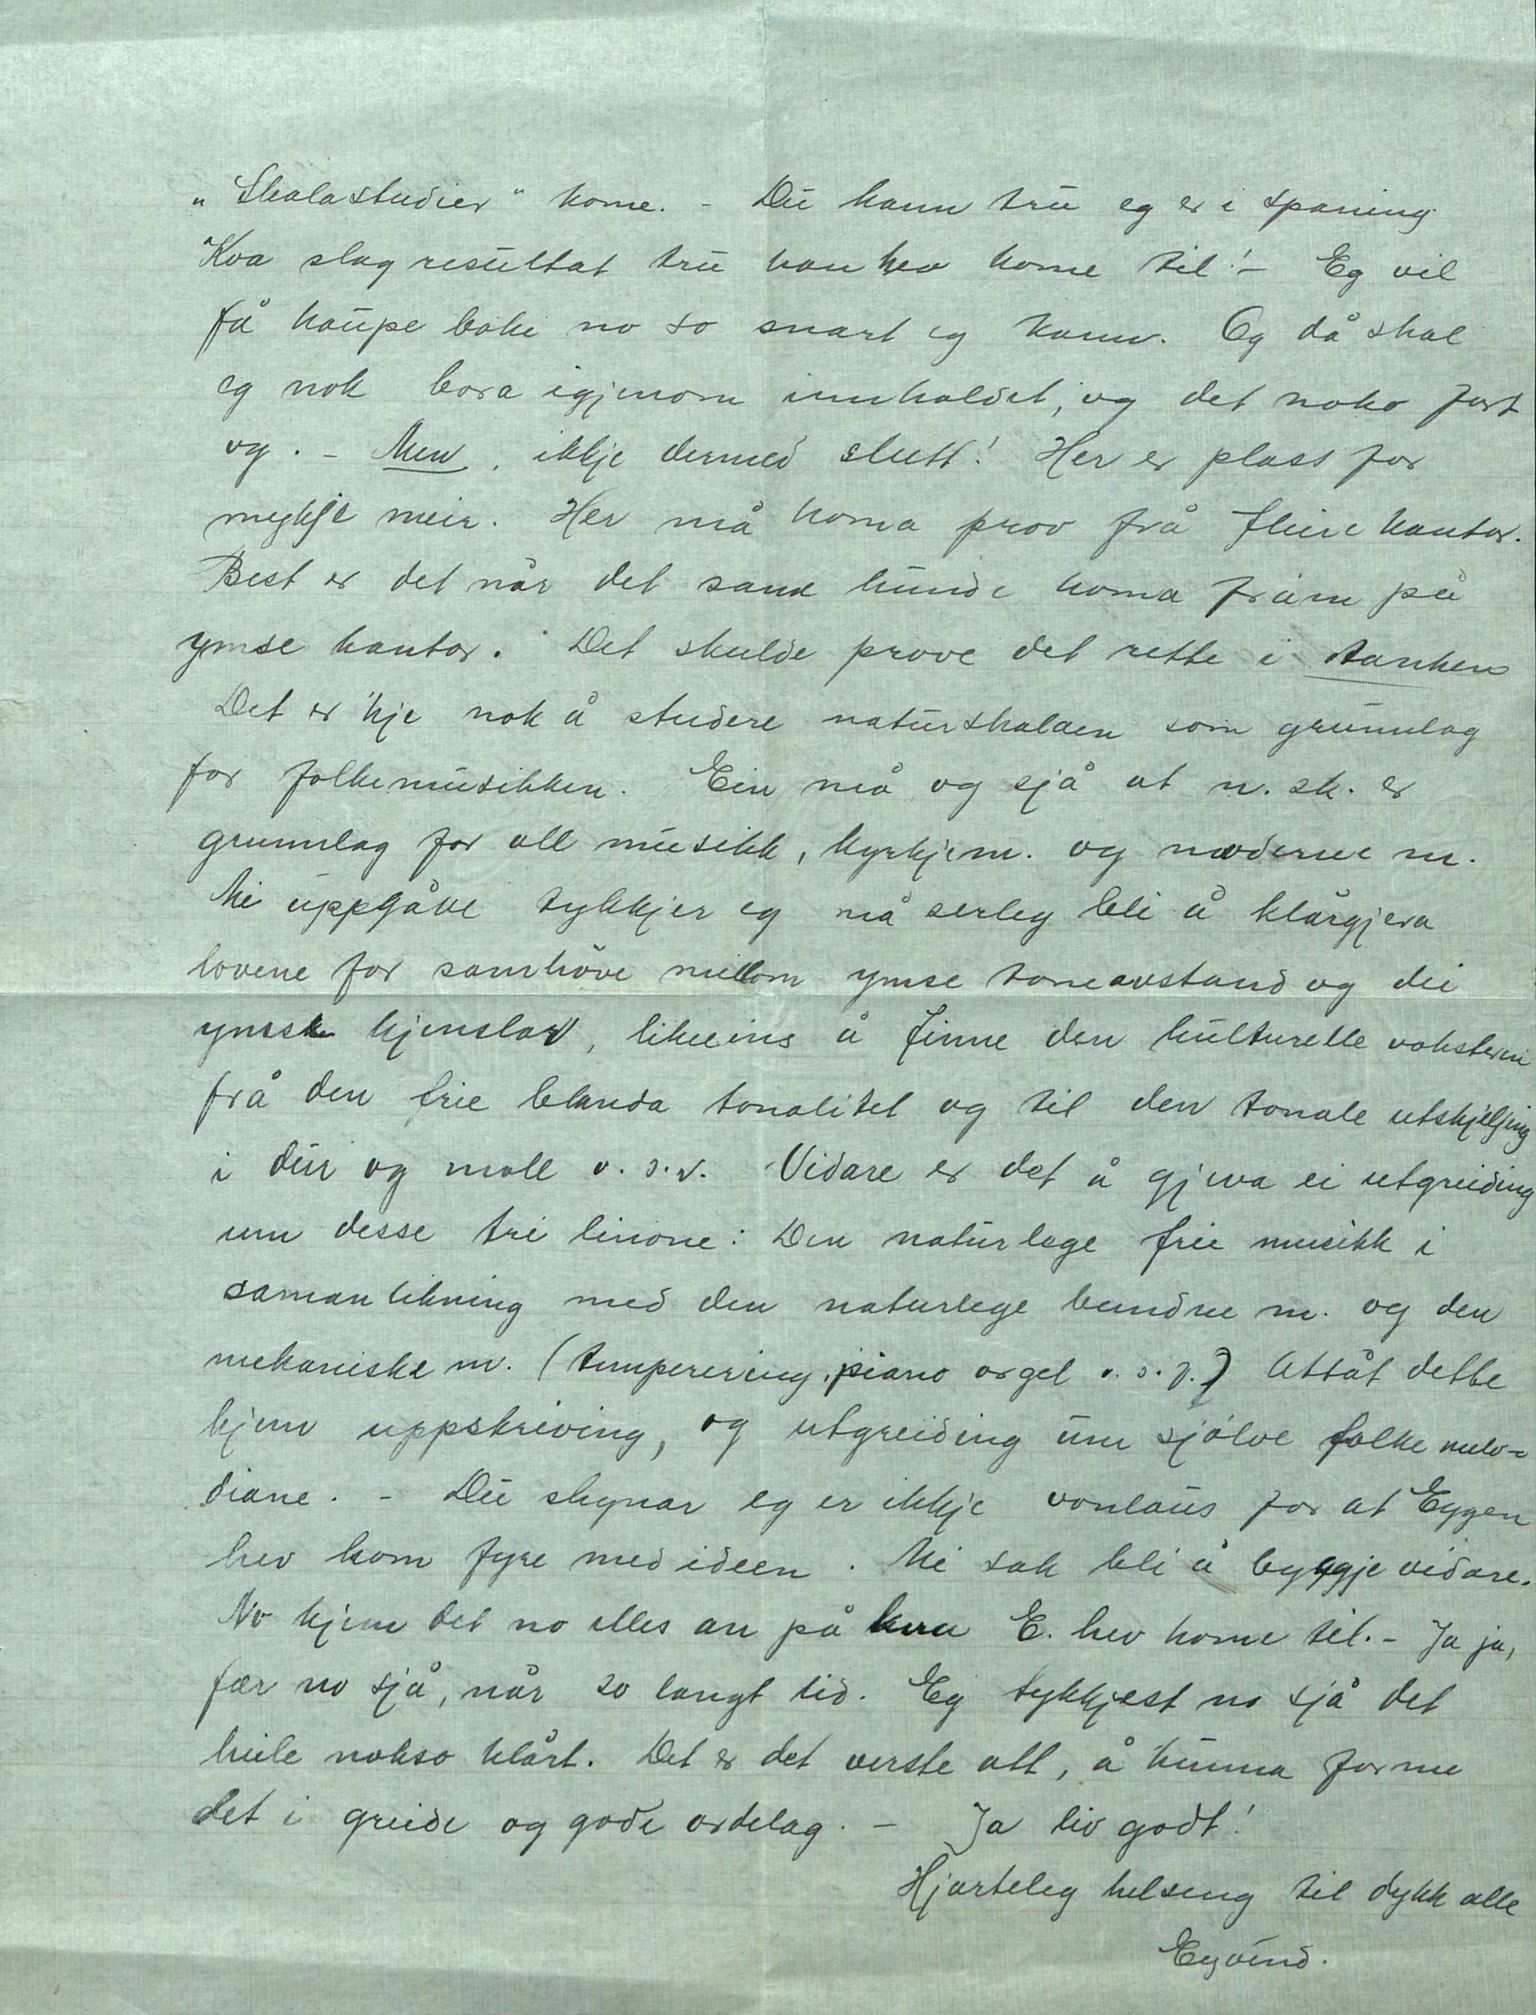 „Skalastudier“ kome. - Du kann tru eg er i spaning
Kva slag resultat tru han hev kome til! - Eg vil
få kaupe boke no so snart eg kann. Og då skal
eg nok bora igjenom innhaldet, og det noko fort
og. - Men, ikkje dermed slutt! Her er plass for
mykje meir. Her må koma prov frå fleire kantar.
Best er det når det same kunde koma fram på
ymse kantar. Det skulde prove det rette i tanken
Det er 'kje nok å studere naturskalaen som grunnlag
for folkemusikken. Ein må og sjå at n. sk. er
grunnlag for all musikk, kyrkjem. og moderne m.
Mi uppgåve tykkjer eg må serleg bli å klårgjera
lovene for samhøve millom ymse toneavstand og dei
ymse kjenslor, likeeins å finne den kulturelle voksteren
frå den frie blanda tonalitet og til den tonale utskjeljing
i dur og moll o. s. v. Vidare er det å gjeva ei utgreiding
um desse tri linone: Den naturlege frie musikk i
samanlikning med den naturlege bundne m. og den
mekaniske m. (temperering, piano orgel o. s. f.) Attåt dette
kjem uppskriving, og utgreiding um sjølve folke melo-
diane. - Du skynar eg er ikkje vonlaus for at Eggen
hev kom fyre med ideen. Mi sak bli å byggje vidare.
No kjem det no elles an på kva E. hev kome til. - Ja ja,
fær no sjå, når so langt lid. Eg tykkjest no sjå det
heile nokso klårt. Det er det verste att, å kunna forme
det i greide og gode ordelag. - Ja liv godt!
Hjarteleg helsing til dykk alle
Eyvind.